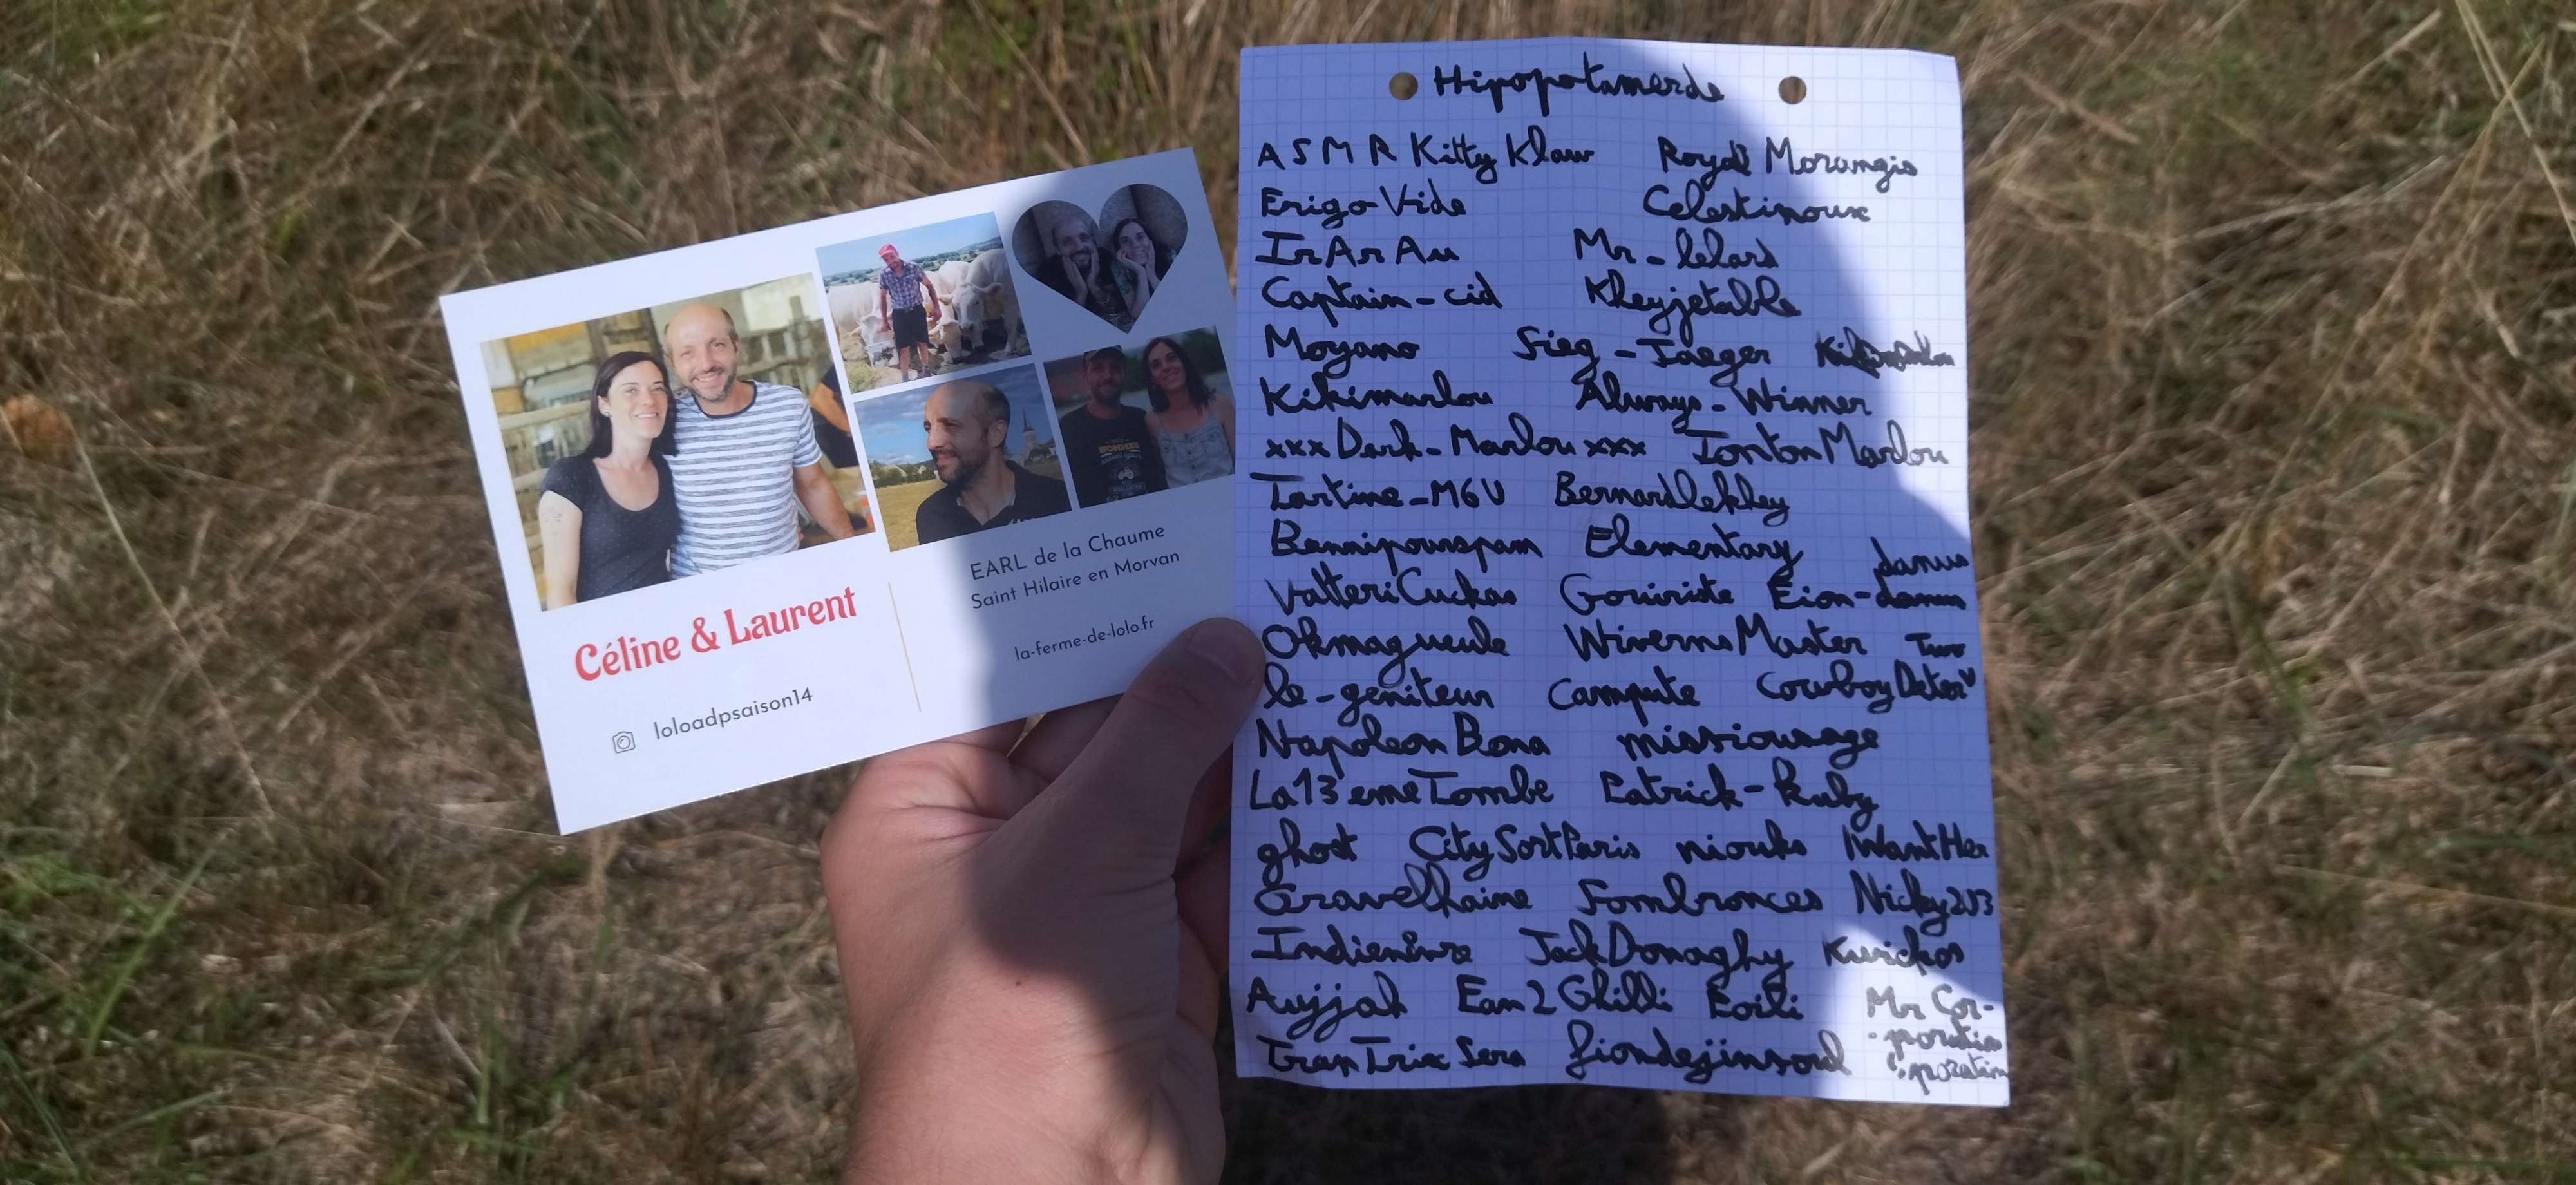 Céline & Laurent
loloadpsaison14
EARL de la Chaume
Saint Hilaire en Morvan
la-ferme-de-lolo.fr
Hipopotamerde
ASMR Kitty Klaw Royal Morangis
Erigo-Vide Celestinoux
IrArAu Mr-lelard
Captain-cid Kheyjetable
Moyano Sieg-Jaeger
Kikimarlou Always-Winner
xxxDark-Marlouxxx TontonMarlou
Tartine-MGV Bernardlekhey
Bannipourspam Elementary
ValtteriCuckas Gouiriste Eion-danus
Okmagueule WivernsMaster Two
le-geniteur Campute CowboyDeter
NapoleonBona missiousage
La13emeTombe Patrick-Ruby
ghost CitySortParis niouks IWantHer
Gravelhaine Sombronces Nicky203
JackDonaghy Kwickos
Aujjah Eau2Ghilli Eoili Mr Cor-
-poration
TranTrixSera fiondejinsoul